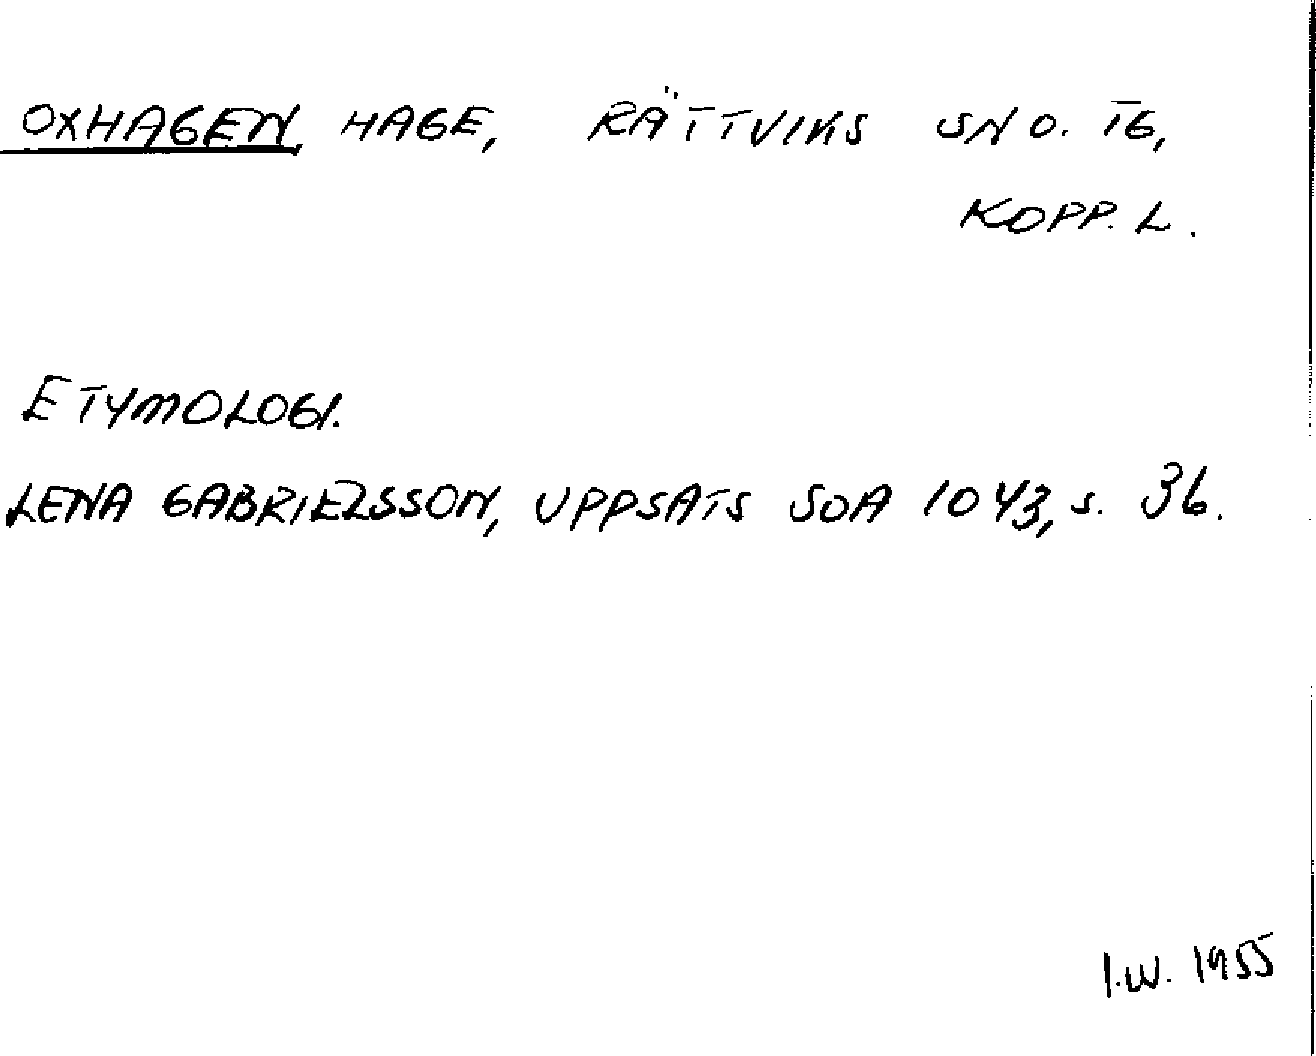 OXHAGEN, HAGE, RÄTTVIKS SN O. TG,
KOPP. L.
ETYMOLOGI.
LENA GABRIELSSON, UPPSATS SOA 1043, S. 36.
I.W. 1955